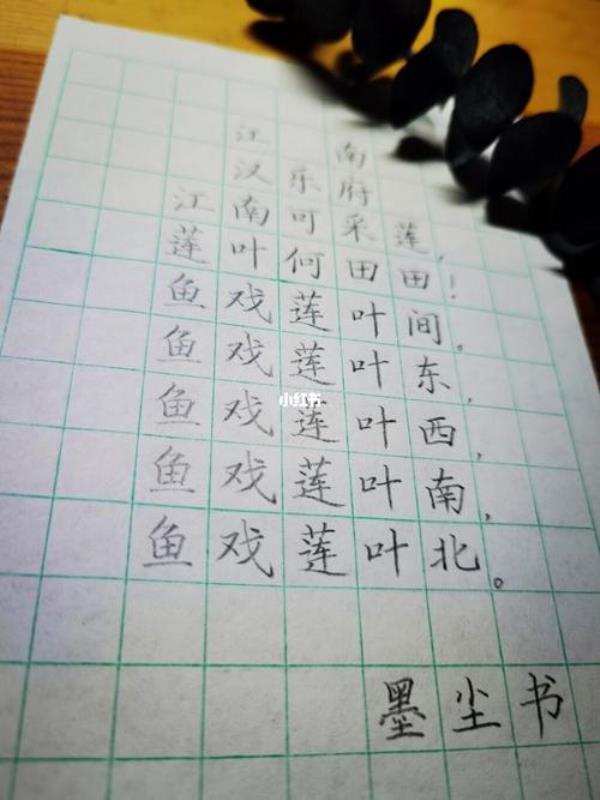 江 南
汉乐府
江南可采莲，
莲叶何田田！
鱼戏莲叶间。
鱼戏莲叶东，
鱼戏莲叶西，
鱼戏莲叶南，
鱼戏莲叶北。
墨尘书
小红书